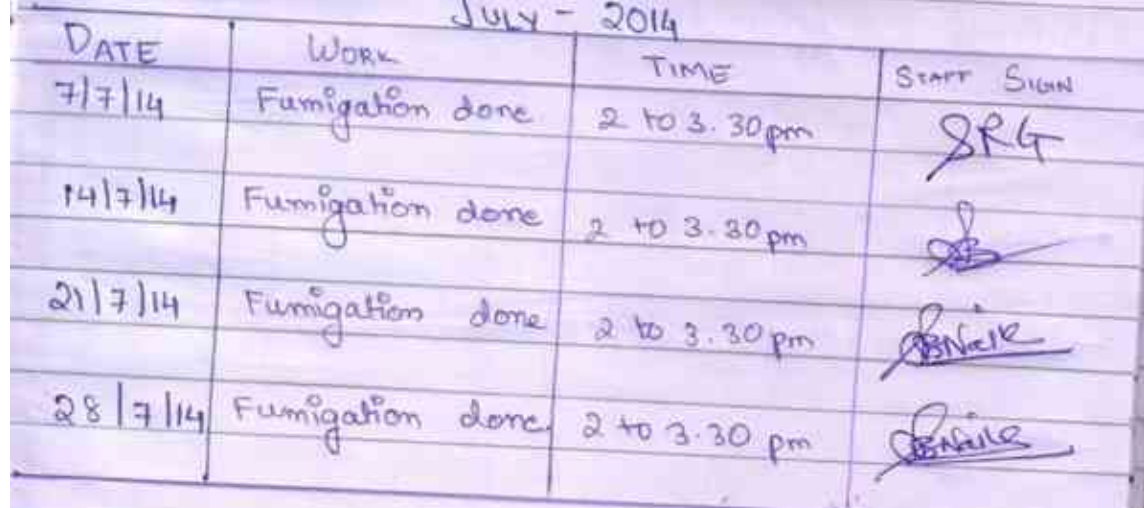 JULY - 2014
DATE WORK TIME STAFF SIGN
7/7/14 Fumigation done 2 to 3.30pm SRG
14/7/14 Fumigation done 2 to 3.30 pm
21/7/14 Fumigation done 2 to 3.30 pm
28/7/14 Fumigation done 2 to 3.30 pm